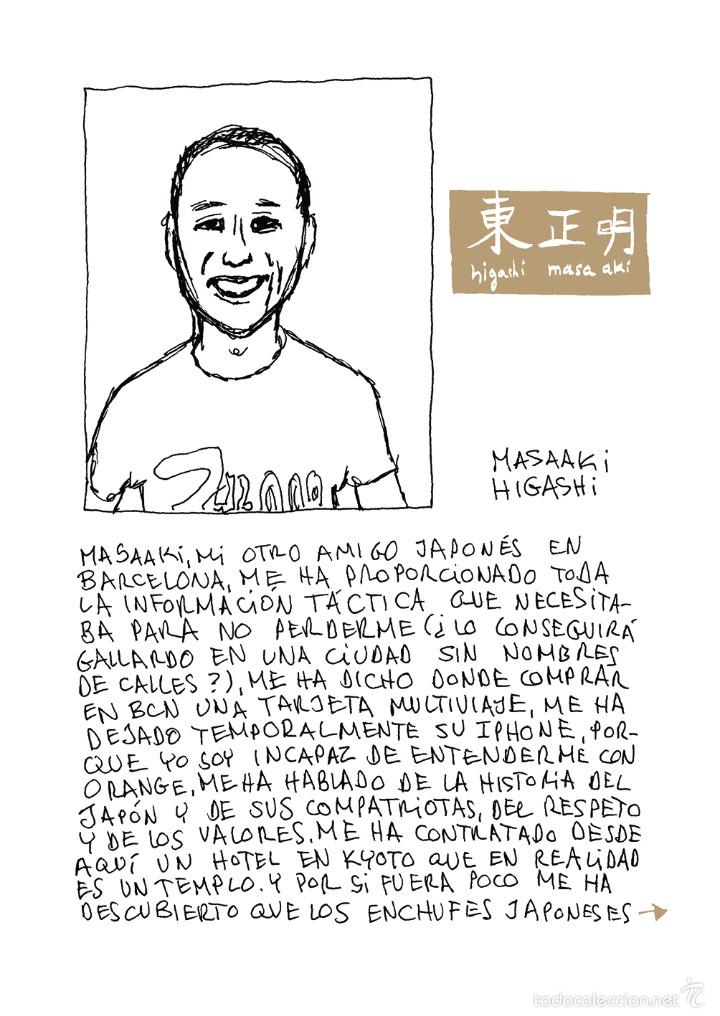 東正明
higashi masaaki
MASAAKI
HIGASHI
MASAAKI, MI OTRO AMIGO JAPONÉS EN
BARCELONA, ME HA PROPORCIONADO TODA
LA INFORMACIÓN TÁCTICA QUE NECESITA-
BA PARA NO PERDERME (¿LO CONSEGUIRÁ
GALLARDO EN UNA CIUDAD SIN NOMBRES
DE CALLES?), ME HA DICHO DONDE COMPRAR
EN BCN UNA TARJETA MULTIVIAJE, ME HA
DEJADO TEMPORALMENTE SU IPHONE, POR-
QUE YO SOY INCAPAZ DE ENTENDERME CON
ORANGE, ME HA HABLADO DE LA HISTORIA DEL
JAPÓN Y DE SUS COMPATRIOTAS, DEL RESPETO
Y DE LOS VALORES. ME HA CONTRATADO DESDE
AQUÍ UN HOTEL EN KYOTO QUE EN REALIDAD
ES UN TEMPLO. Y POR SI FUERA POCO ME HA
DESCUBIERTO QUE LOS ENCHUFES JAPONESES →
todocoleccion.net